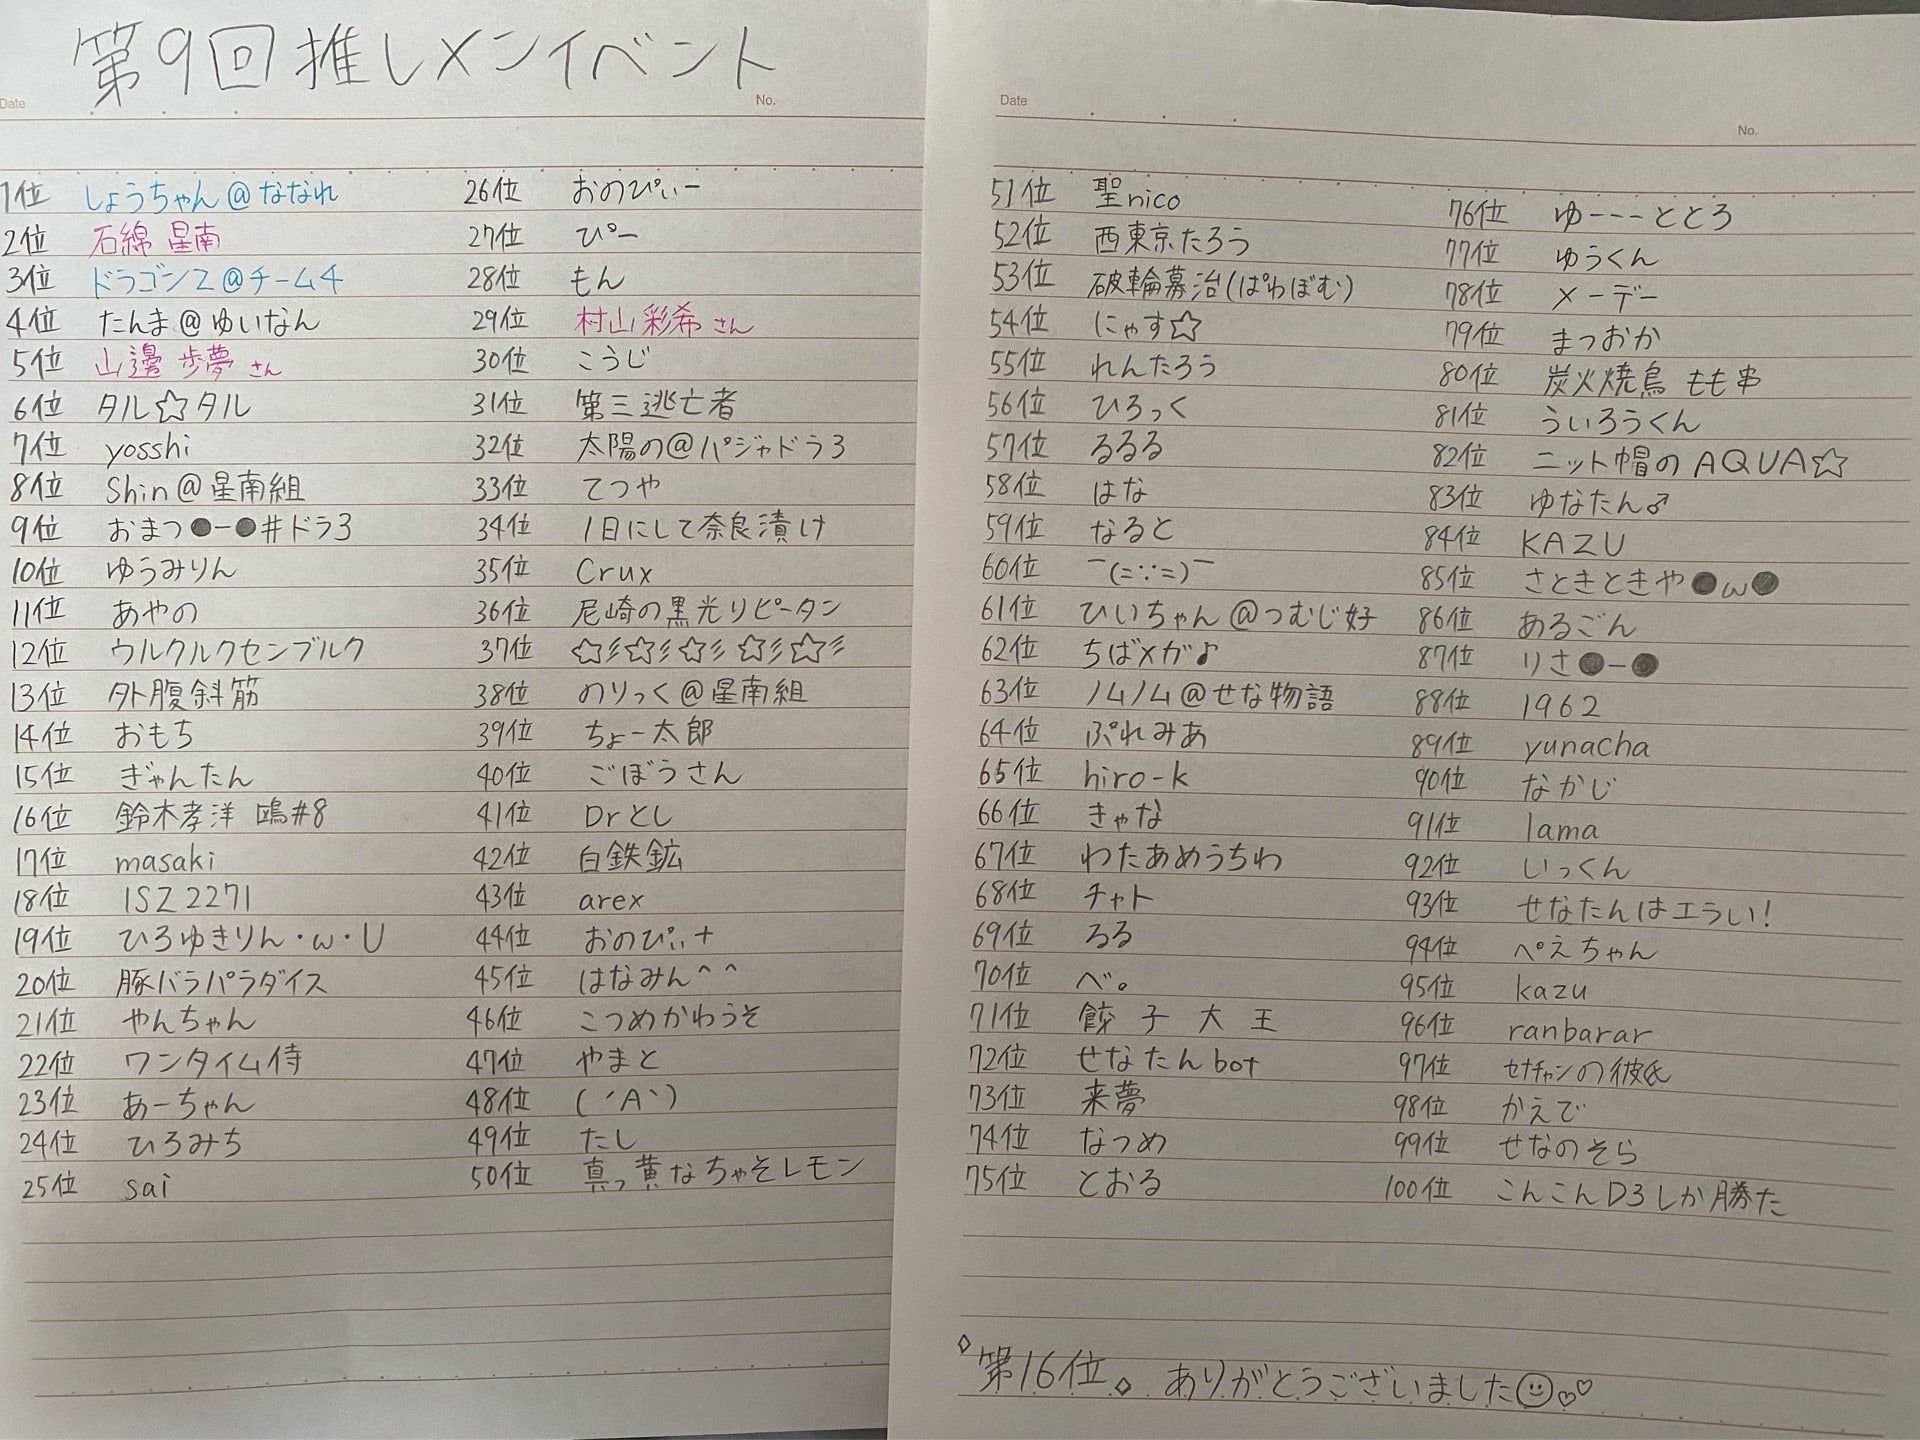 第9回 推しメンイベント
Date
No.
1位 しょうちゃん@ななれ
2位 石綿 星南
3位 ドラゴンZ@チーム4
4位 たんま@ゆいなん
5位 山邊 歩夢 さん
6位 タル☆タル
7位 yosshi
8位 Shin@星南組
9位 おまつ●ー●#ドラ3
10位 ゆうみりん
11位 あやの
12位 ウルクルクセンブルク
13位 外腹斜筋
14位 おもち
15位 ぎゃんたん
16位 鈴木孝洋 鴎#8
17位 masaki
18位 ISZ2271
19位 ひろゆきりん・ω・U
20位 豚バラパラダイス
21位 やんちゃん
22位 ワンタイム侍
23位 あーちゃん
24位 ひろみち
25位 sai
26位 おのぴぃー
27位 ぴー
28位 もん
29位 村山彩希さん
30位 こうじ
31位 第三逃亡者
32位 太陽の@パジャドラ3
33位 てつや
34位 1日にして奈良漬け
35位 Crux
36位 尼崎の黒光りピータン
37位 ☆彡☆彡☆彡☆彡☆彡
38位 のりっく@星南組
39位 ちょー太郎
40位 ごぼうさん
41位 Drとし
42位 白鉄鉱
43位 arex
44位 おのぴぃ+
45位 はなみん^^
46位 こつめかわうそ
47位 やまと
48位 (´A`)
49位 たし
50位 真っ黄なちゃそレモン
Date
No.
51位 聖nico
52位 西東京たろう
53位 破輪募治(ぱわぼむ)
54位 にゃす☆
55位 れんたろう
56位 ひろっく
57位 るるる
58位 はな
59位 なると
60位 ￣(=∵=)￣
61位 ひいちゃん@つむじ好
62位 ちばメガ♪
63位 ノムノム@せな物語
64位 ぷれみあ
65位 hiro-k
66位 きゃな
67位 わたあめうちわ
68位 チャト
69位 るる
70位 べ。
71位 餃子大王
72位 せなたんbot
73位 来夢
74位 なつめ
75位 とおる
76位 ゆーーーととろ
77位 ゆうくん
78位 メーデー
79位 まつおか
80位 炭火焼鳥 もも串
81位 ういろうくん
82位 ニット帽のAQUA☆
83位 ゆなたん♂
84位 KAZU
85位 さときときや●ω●
86位 あるごん
87位 りさ●ー●
88位 1962
89位 yunacha
90位 なかじ
91位 lama
92位 いっくん
93位 せなたんはエラい!
94位 ぺえちゃん
95位 kazu
96位 ranbarar
97位 セナチャンの彼氏
98位 かえで
99位 せなのそら
100位 こんこんD3しか勝た
◇第16位。◇ ありがとうございました☺♡♡